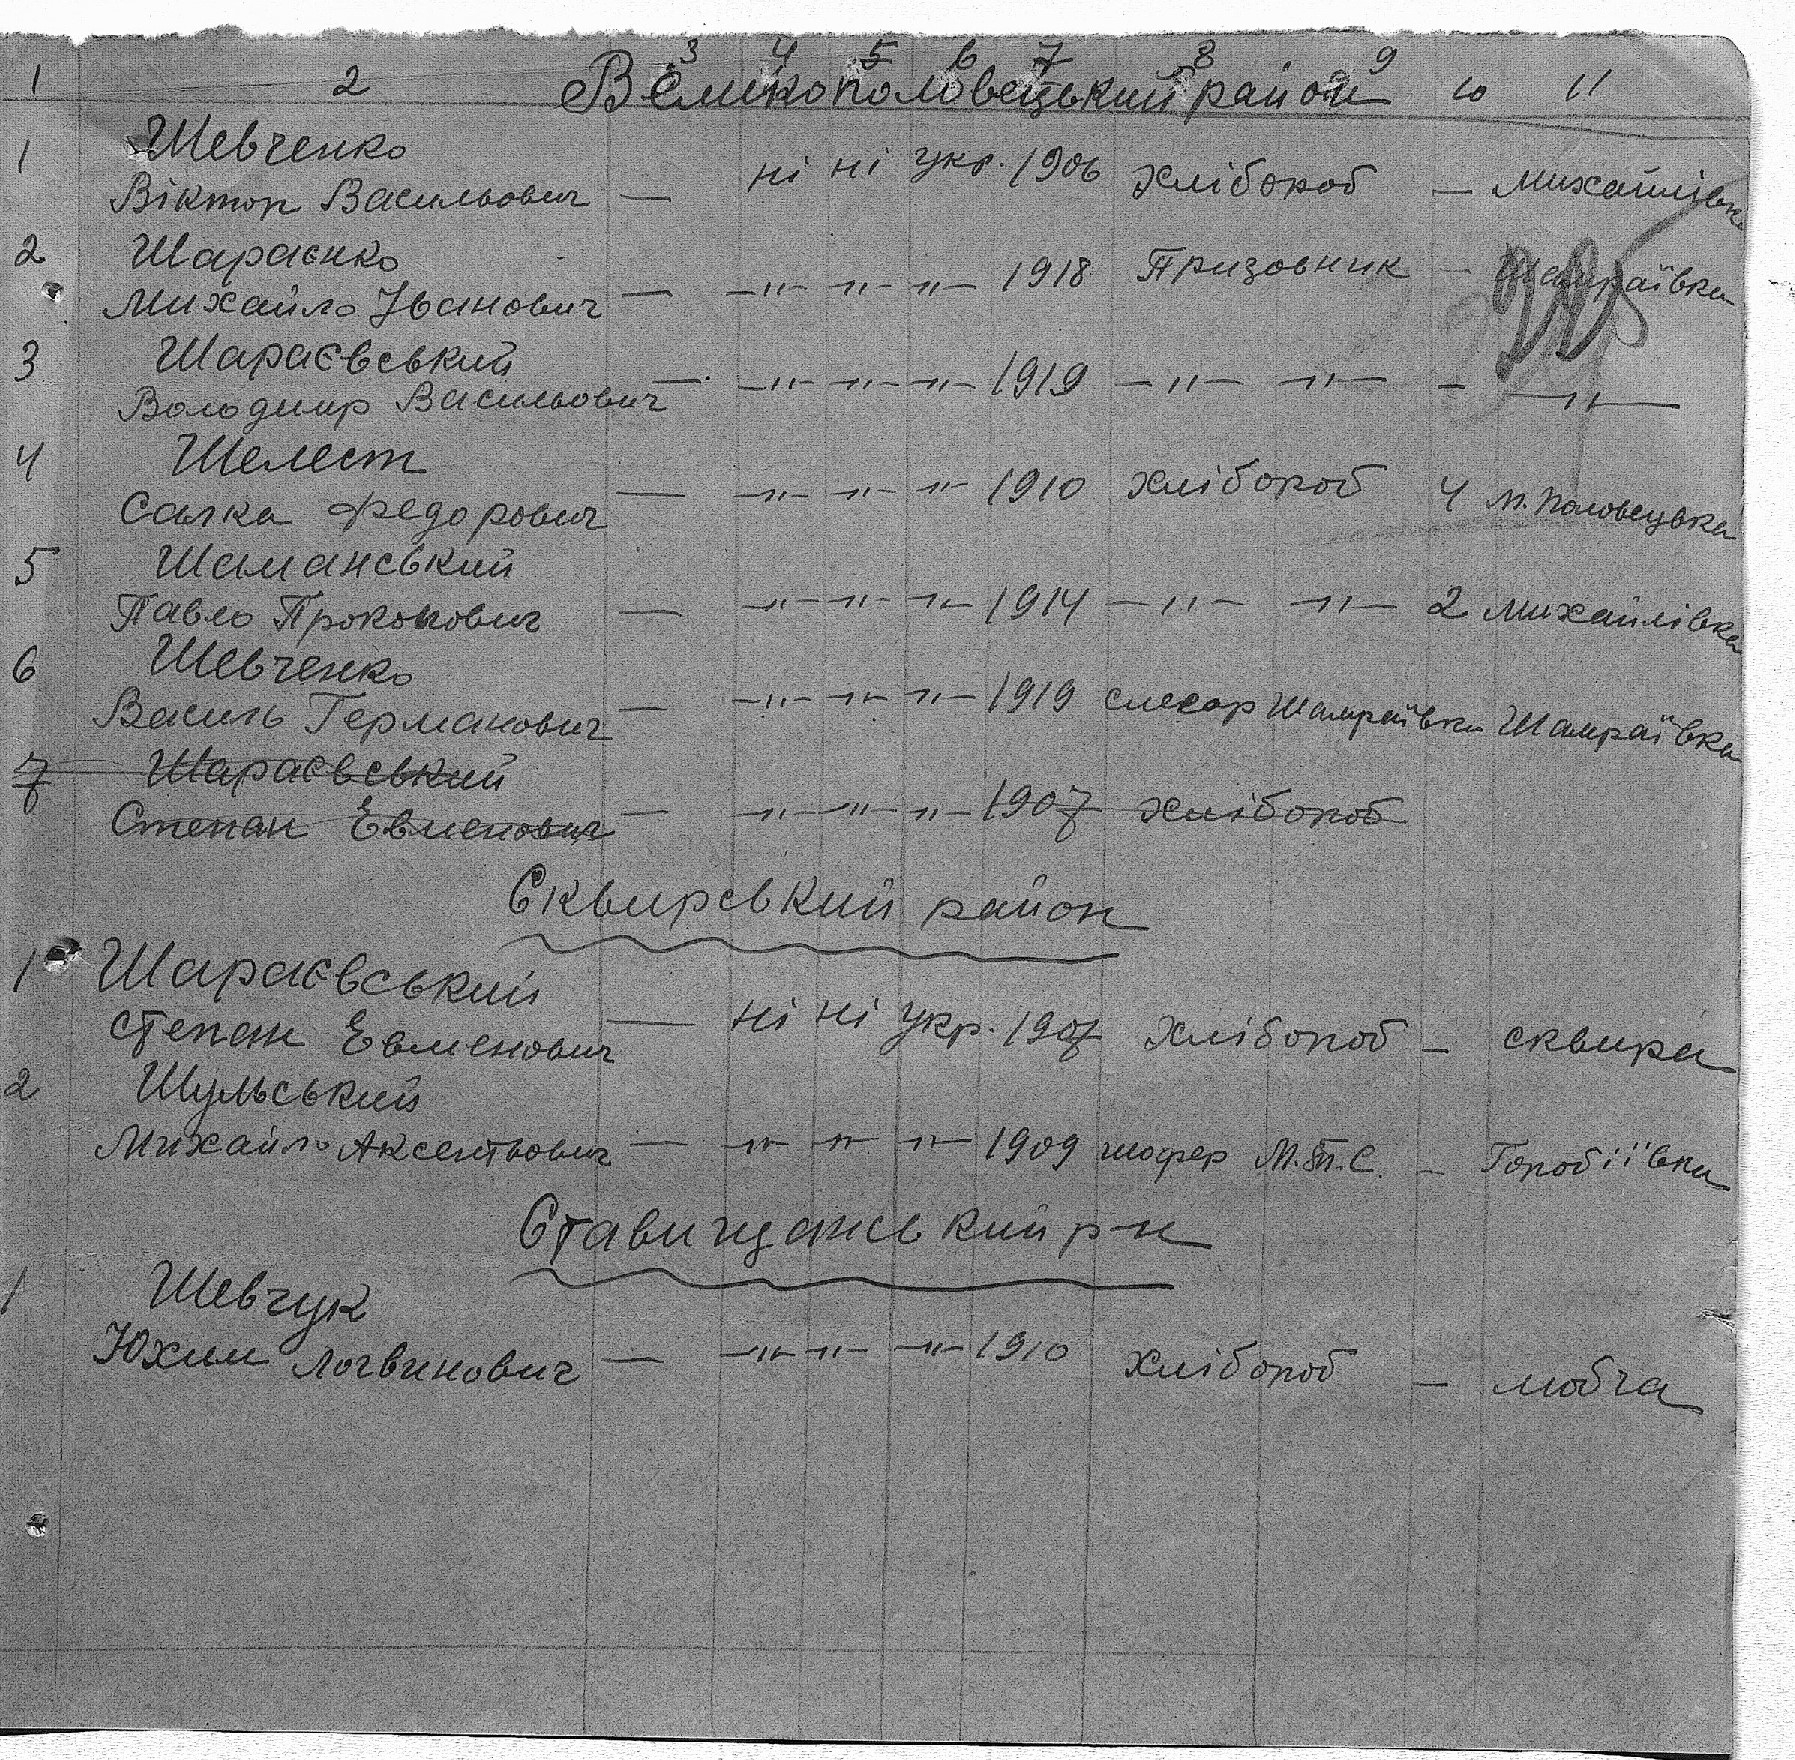 1 2 3 4 5 6 7 8 9 10 11
Великополовецький район
1 Шевченко
Віктор Васильович — ні ні укр. 1906 Хлібороб — Михайлівка
2 Шараєнко
Михайло Іванович — —"— —"— —"— 1918 Призовник — Шамраївка
3 Шараєвський
Володимир Васильович — —"— —"— —"— 1919 —"— —"— — —"—
4 Шелест
Савка Федорович — —"— —"— —"— 1910 Хлібороб 4 М. Половецька
5 Шаманський
Павло Прокопович — —"— —"— —"— 1914 —"— —"— 2 Михайлівка
6 Шевченко
Василь Германович — —"— —"— —"— 1919 слесар Шамраївки Шамраївка
7 Шараєвський
Степан Евменович — —"— —"— —"— 1907 хлібороб
Сквирський район
1 Шараєвський
Степан Евменович — ні ні укр. 1907 Хлібороб — сквира
2 Шульський
Михайло Аксентьович — —"— —"— —"— 1909 шофер М.Т.С. — Горобіївка
Ставищанський р-н
1 Шевчук
Юхим Логвинович — —"— —"— —"— 1910 Хлібороб —